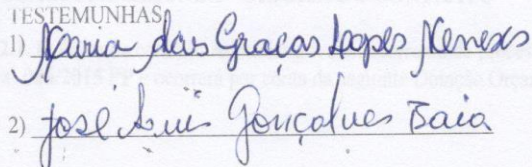 TESTEMUNHAS
1) Maria das Graças Lopes Meneses
2) José Luis Gonçalves Baia